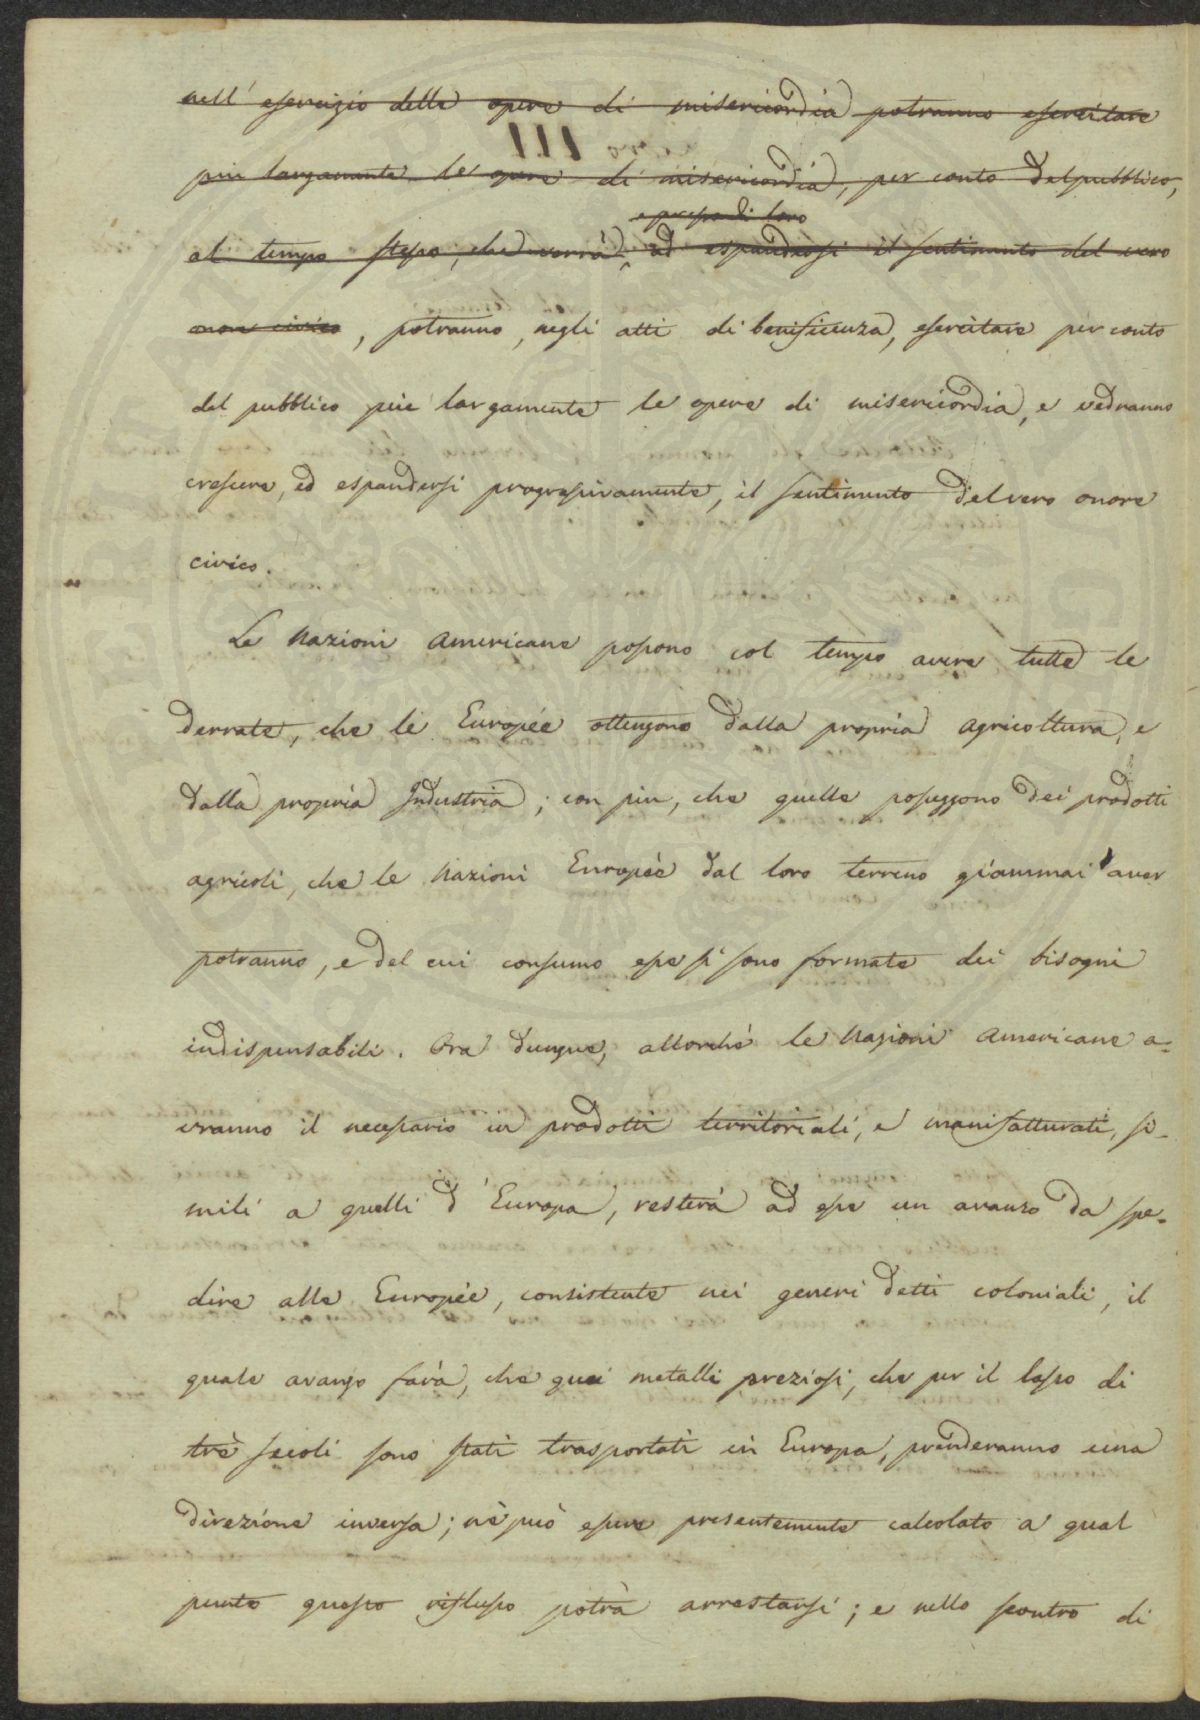 nell' esercizio delle opere di misericordia potranno esercitare
più largamente le opere di misericordia, per conto del pubblico,
e presso di loro
al tempo stesso, che verrà, ad espandersi il sentimento del vero
onore civico, potranno, negli atti di benificenza, esercitare per conto
del pubblico più largamente le opere di misericordia, e vedranno
crescere, ed espandersi progressivamente, il sentimento del vero onore
civico.
Le Nazioni Americane possono col tempo avere tutte le
derrate, che le Europée ottengono dalla propria agricoltura, e
dalla propria Industria; con più, che quelle posseggono dei prodotti
agricoli, che le Nazioni Europèe dal loro terreno giammai aver
potranno, e del cui consumo esse si sono formate dei bisogni
indispensabili. Ora dunque, allorchè le Nazioni Americane a=
vranno il necessario in prodotti territoriali, e manifatturati, si=
mili a quelli d'Europa, resterà ad esse un avanzo da spe=
dire alle Europée, consistente nei generi detti coloniali, il
quale avanzo farà, che quei metalli preziosi, che per il lasso di
trè secoli sono stati trasportati in Europa, prenderanno una
direzione inversa; nè può essere presentemente calcolato a qual
punto questo riflusso potrà arrestarsi; e nello scontro di